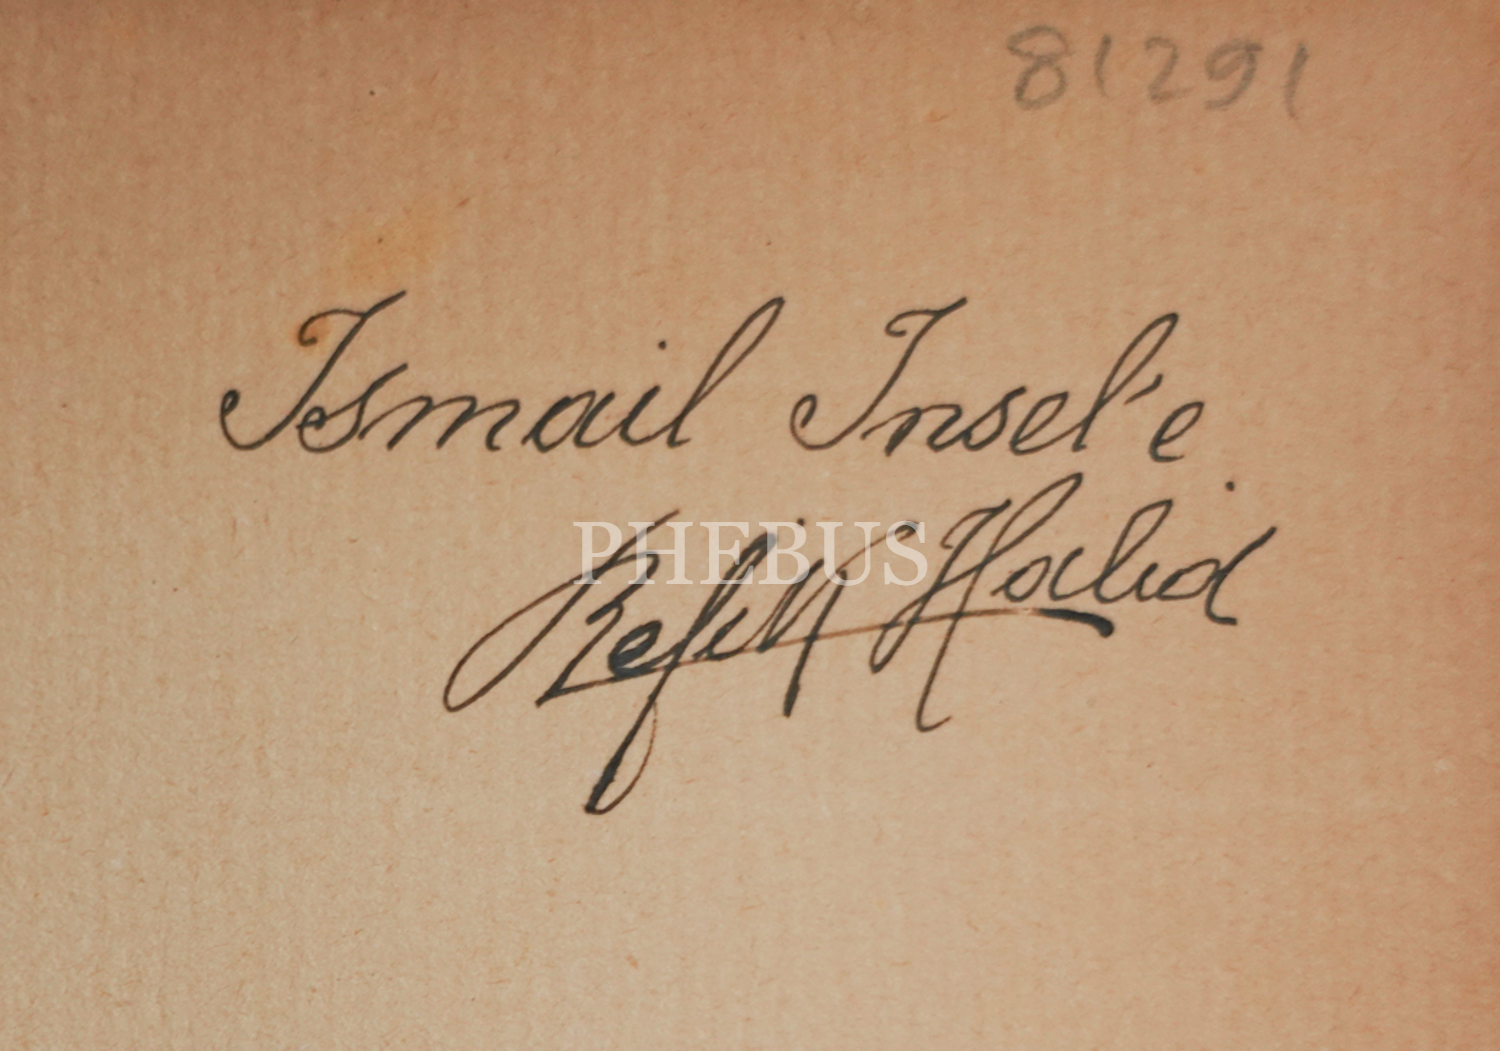 81291
Ismail Insel'e
Refik Halid
PHEBUS